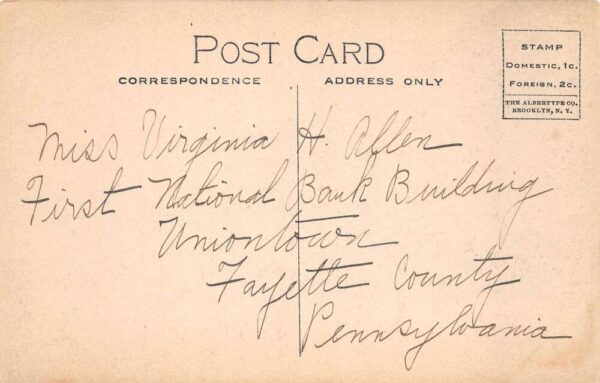 POST CARD
CORRESPONDENCE
ADDRESS ONLY
STAMP
DOMESTIC, 1c.
FOREIGN, 2c.
THE ALBERTYPE CO.
BROOKLYN, N. Y.
Miss Virginia H. Allen
First National Bank Building
Uniontown
Fayette County
Pennsylvania